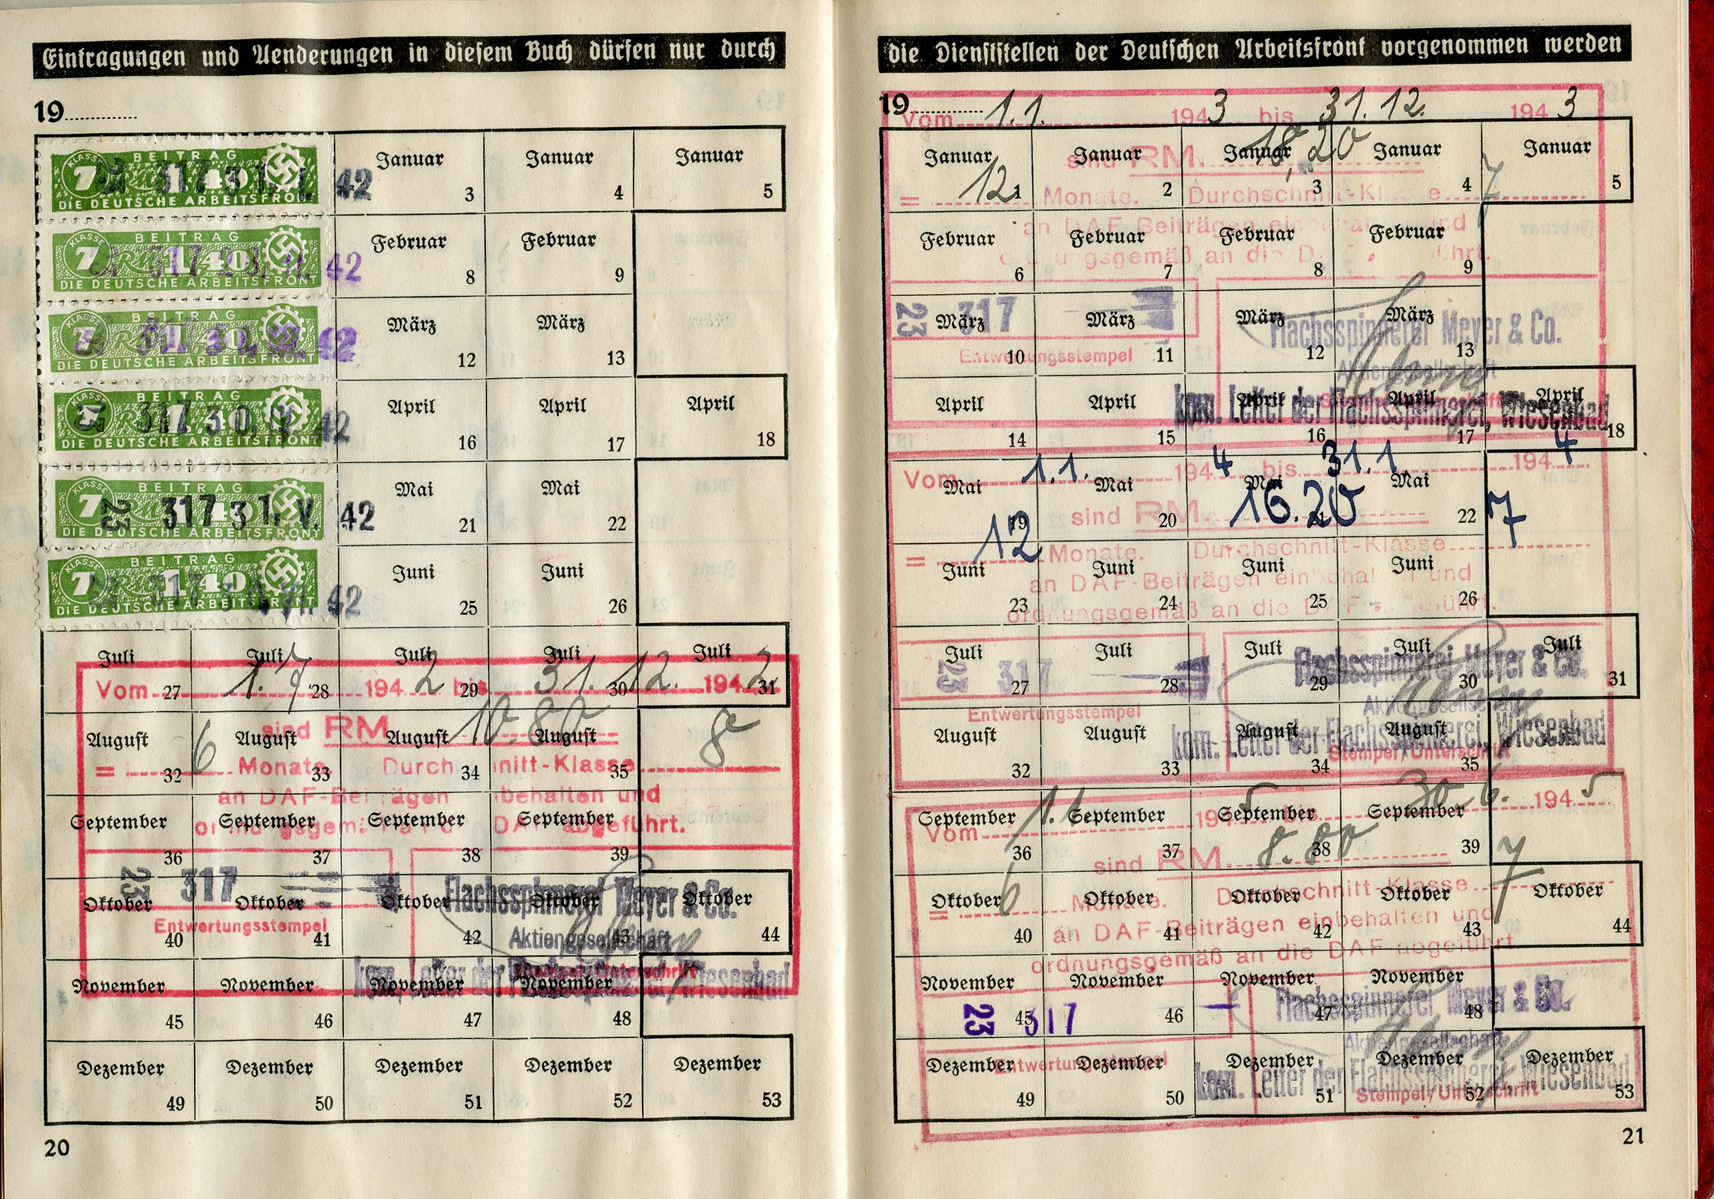 Eintragungen und Aenderungen in diesem Buch dürfen nur durch
19
KLASSE 7 BEITRAG 1.40
317 31. I. 42
DIE DEUTSCHE ARBEITSFRONT
Januar 3 Januar 4 Januar 5
KLASSE 7 BEITRAG 1.40
317 42
DIE DEUTSCHE ARBEITSFRONT
Februar 8 Februar 9
KLASSE 7 BEITRAG
42
DIE DEUTSCHE ARBEITSFRONT
März 12 März 13
317 30. 42
DIE DEUTSCHE ARBEITSFRONT
April 16 April 17 April 18
KLASSE 7 BEITRAG 1.40
23 317 31. V. 42
DIE DEUTSCHE ARBEITSFRONT
Mai 21 Mai 22
KLASSE 7 BEITRAG 1.40
317 42
DIE DEUTSCHE ARBEITSFRONT
Juni 25 Juni 26
Juli 27 Juli 28 Juli 29 Juli 30 Juli 31
Vom 1.7 1942 bis 31.12. 1942
sind RM. 10.80
August 32 August 33 August 34 August 35
= 6 Monate Durchschnitt-Klasse 8
an DAF-Beiträgen einbehalten und
ordnungsgemäß an die DAF abgeführt.
September 36 September 37 September 38 September 39
23 317
Entwertungsstempel
Flachsspinnerei Meyer & Co.
Aktiengesellschaft
kom. Leiter der Flachsspinnerei, Wiesenbad
Stempel/Unterschrift
Oktober 40 Oktober 41 Oktober 42 Oktober 43 Oktober 44
November 45 November 46 November 47 November 48
Dezember 49 Dezember 50 Dezember 51 Dezember 52 Dezember 53
20
die Dienststellen der Deutschen Arbeitsfront vorgenommen werden
19
Vom 1.1. 1943 bis 31.12. 1943
sind RM. 18,20
Januar 1 Januar 2 Januar 3 Januar 4 Januar 5
= 12 Monate. Durchschnitt-Klasse 7
an DAF-Beiträgen einbehalten und
ordnungsgemäß an die DAF abgeführt.
Februar 6 Februar 7 Februar 8 Februar 9
23 317
Entwertungsstempel
Flachsspinnerei Meyer & Co.
Aktiengesellschaft
kom. Leiter der Flachsspinnerei, Wiesenbad
März 10 März 11 März 12 März 13
April 14 April 15 April 16 April 17 April 18
Vom 1.1. 1944 bis 31.1. 1944
sind RM. 16.20
Mai 19 Mai 20 Mai 21 Mai 22
= 12 Monate. Durchschnitt-Klasse 7
an DAF-Beiträgen einbehalten und
ordnungsgemäß an die DAF abgeführt.
Juni 23 Juni 24 Juni 25 Juni 26
23 317
Entwertungsstempel
Flachsspinnerei Meyer & Co.
Aktiengesellschaft
kom. Leiter der Flachsspinnerei, Wiesenbad
Stempel/Unterschrift
Juli 27 Juli 28 Juli 29 Juli 30 Juli 31
August 32 August 33 August 34 August 35
Vom 1.1 1945 bis 30.6. 1945
sind RM. 8.80
September 36 September 37 September 38 September 39
= 6 Monate. Durchschnitt-Klasse 7
an DAF-Beiträgen einbehalten und
ordnungsgemäß an die DAF abgeführt
Oktober 40 Oktober 41 Oktober 42 Oktober 43 Oktober 44
23 317
Entwertungsstempel
Flachsspinnerei Meyer & Co.
Aktiengesellschaft
kom. Leiter der Flachsspinnerei, Wiesenbad
Stempel/Unterschrift
November 45 November 46 November 47 November 48
Dezember 49 Dezember 50 Dezember 51 Dezember 52 Dezember 53
21